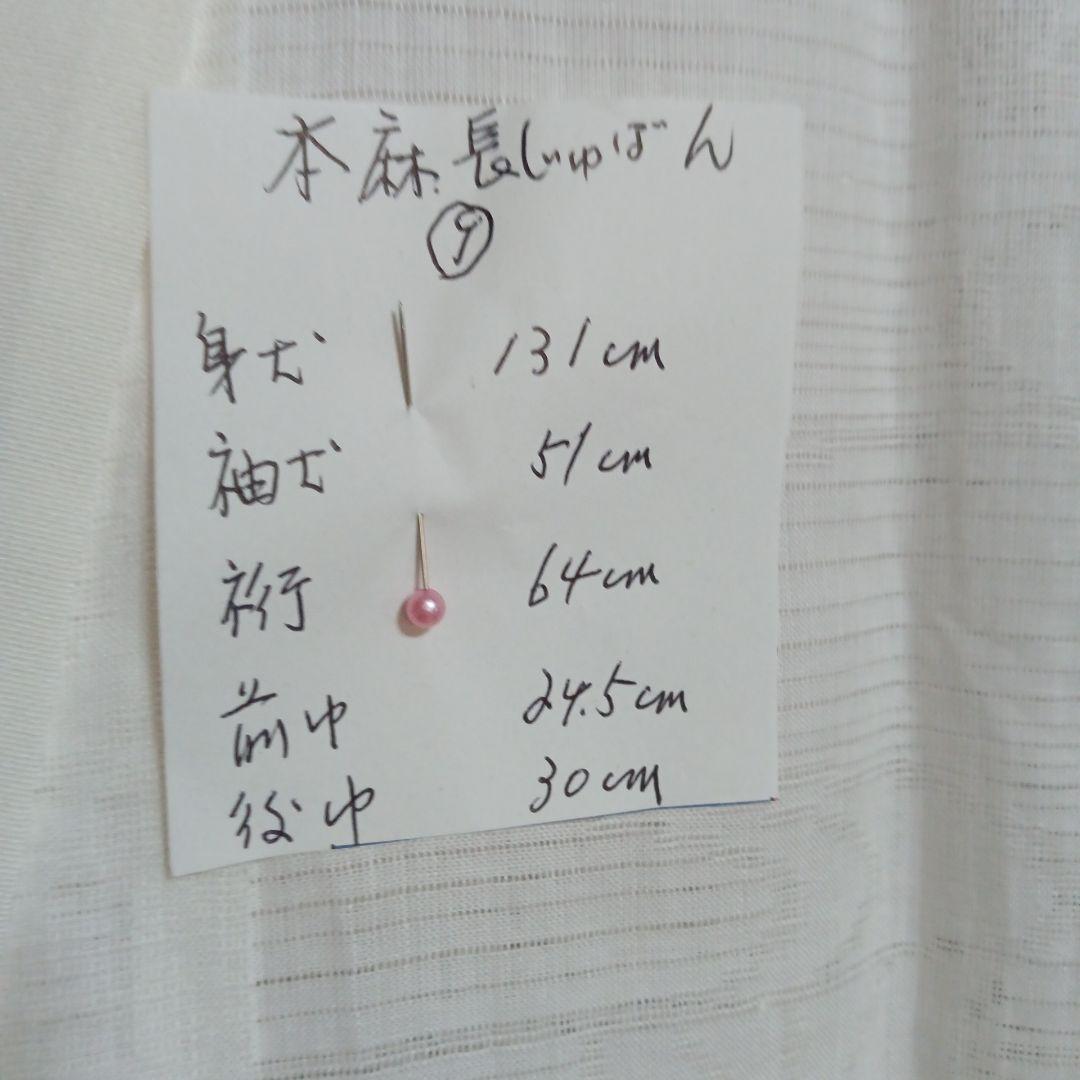 本麻長じゅばん
⑨
身丈 131cm
袖丈 51cm
裄 64cm
前巾 24.5cm
後巾 30cm